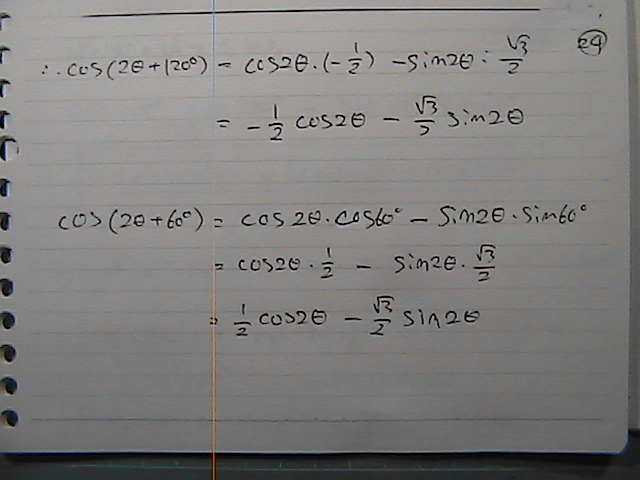 24
∴ cos(2θ+120°) = cos2θ·(-1/2) - sin2θ·√3/2
= -1/2 cos2θ - √3/2 sin2θ
cos(2θ+60°) = cos2θ·cos60° - sin2θ·sin60°
= cos2θ·1/2 - sin2θ·√3/2
= 1/2 cos2θ - √3/2 sin2θ